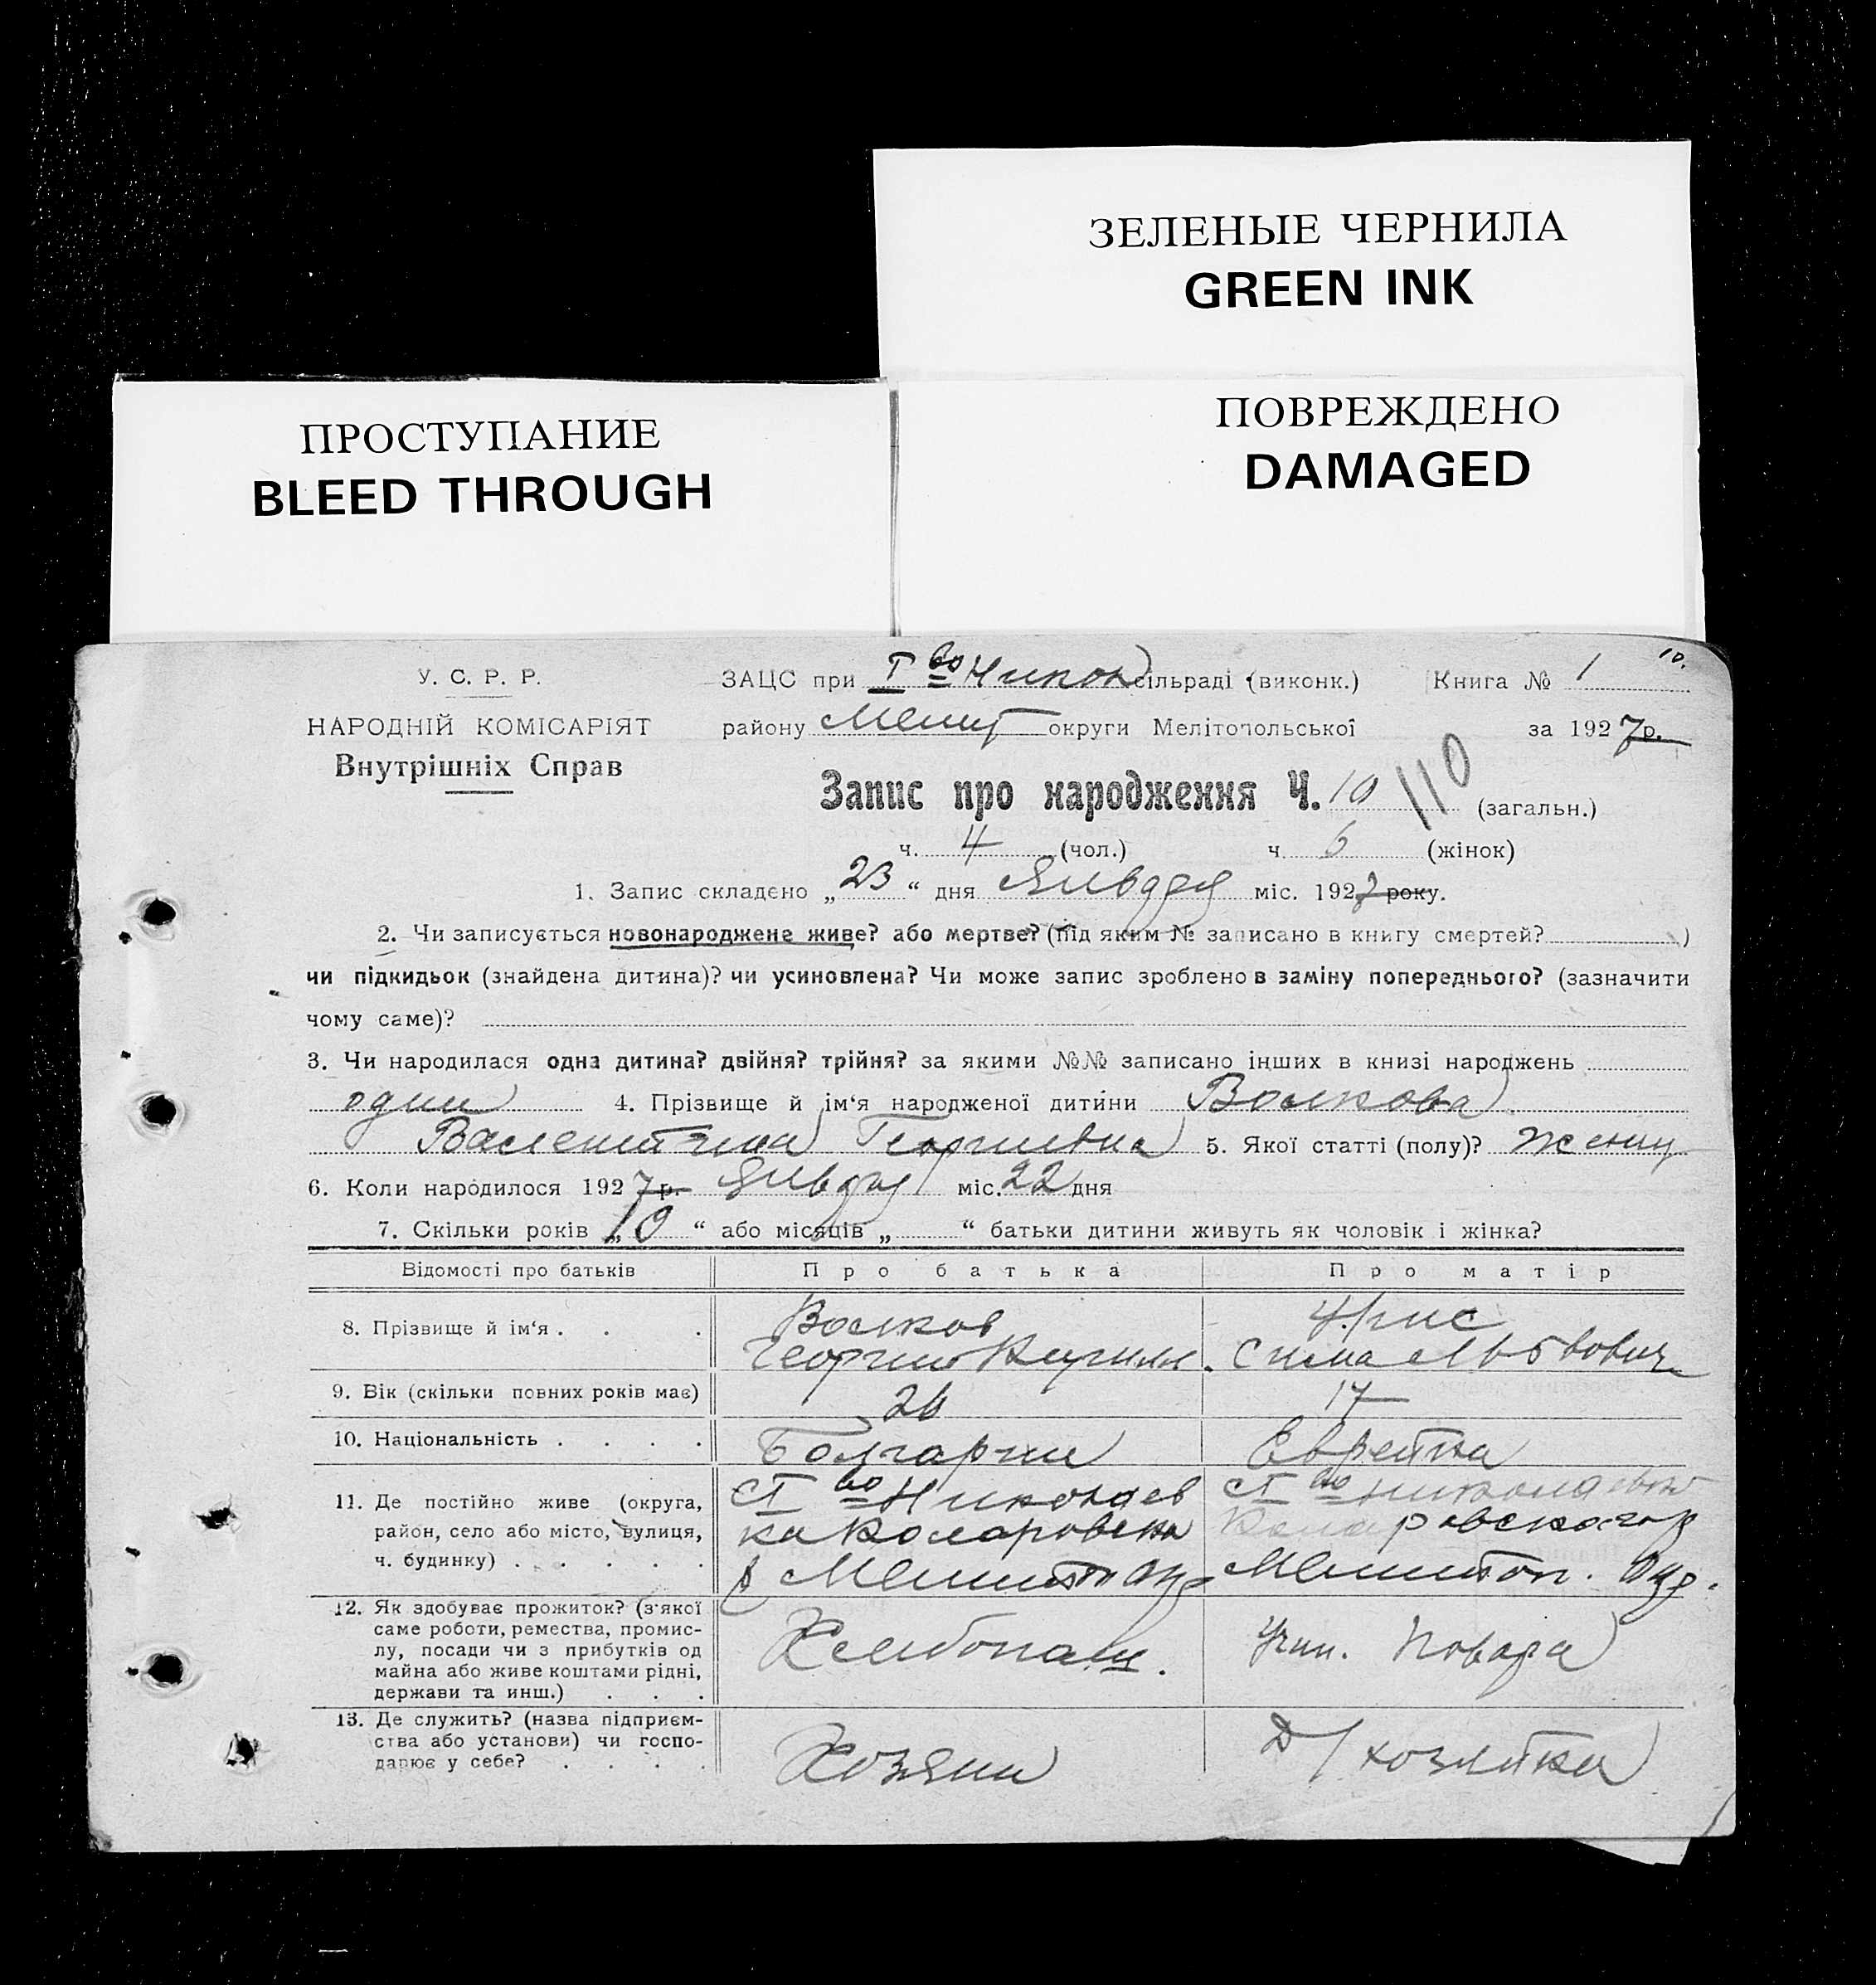 ЗЕЛЕНЫЕ ЧЕРНИЛА
GREEN INK
ПРОСТУПАНИЕ
BLEED THROUGH
ПОВРЕЖДЕНО
DAMAGED
10.
У. С. Р. Р.
НАРОДНІЙ КОМІСАРІЯТ
Внутрішніх Справ
ЗАЦС при I во Никол сільраді (виконк.) Книга № 1
району Мелит округи Мелітопольської за 1927р.
Запис про народження Ч. 10 110 (загальн.)
ч. 4 (чол.) ч 6 (жінок)
1. Запис складено „23“ дня Января міс. 1927 року.
2. Чи записується новонароджене живе? або мертве? (під яким № записано в книгу смертей? )
чи підкидьок (знайдена дитина)? чи усиновлена? Чи може запис зроблено в заміну попереднього? (зазначити
чому саме)?
3. Чи народилася одна дитина? двійня? трійня? за якими №№ записано інших в книзі народжень
один 4. Прізвище й ім‘я народженої дитини Волкова
Валентина Георгиевна 5. Якої статті (полу)? женщ
6. Коли народилося 1927р. Января міс. 22 дня
7. Скільки років „10“ або місяців „ “ батьки дитини живуть як чоловік і жінка?
Відомості про батьків Про батька Про матір
8. Прізвище й ім‘я . . . Волков
Георгий Кирилл. Сима Львович
9. Вік (скільки повних років має) 26 17
10. Національність . . . . Болгарин Еврейка
11. Де постійно живе (округа, Ст во Николаев Ст во Николаевка
район, село або місто, вулиця, ка Коларовска Коларовского р
ч. будинку) . . . . . р Мелитоп Окр Мелитоп. Окр.
12. Як здобуває прожиток? (з якої
саме роботи, ремества, промис-
лу, посади чи з прибутків од Хлебопаш. Повара
майна або живе коштами рідні,
держави та инш.) . . .
13. Де служить? (назва підприєм-
ства або установи) чи госпо- Хозяин Д/хозяйка
дарює у себе? . . . .